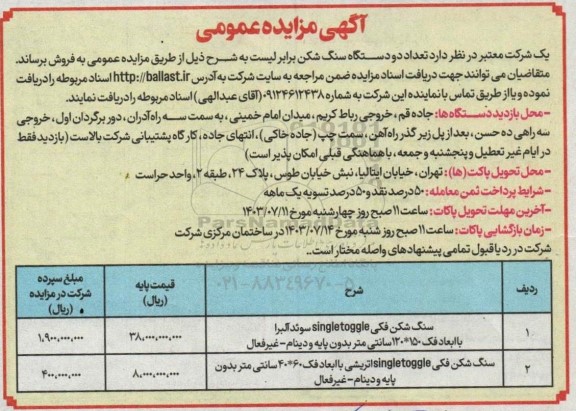 آگهی مزایده عمومی
یک شرکت معتبر در نظر دارد تعداد دو دستگاه سنگ شکن برابر لیست به شرح ذیل از طریق مزایده عمومی به فروش برساند.
متقاضیان می توانند جهت دریافت اسناد مزایده ضمن مراجعه به سایت شرکت به آدرس http://ballast.ir اسناد مربوطه را دریافت
نموده و یا از طریق تماس با نماینده این شرکت به شماره ۰۹۱۲۴۶۱۲۴۳۸ (آقای عبدالهی) اسناد مربوطه را دریافت نمایند.
-محل بازدید دستگاه ها: جاده قم، خروجی رباط کریم، میدان امام خمینی، به سمت سه راه آدران، دور برگردان اول، خروجی
سه راهی ده حسن، بعد از پل زیر گذر راه آهن، سمت چپ (جاده خاکی)، انتهای جاده، کارگاه پشتیبانی شرکت بالاست (بازدید فقط
در ایام غیر تعطیل و پنجشنبه و جمعه، با هماهنگی قبلی امکان پذیر است)
-محل تحویل پاکت (ها): تهران، خیابان ایتالیا، نبش خیابان طوس، پلاک ۲۴، طبقه ۲، واحد حراست
-شرایط پرداخت ثمن معامله: ۵۰ درصد نقد و ۵۰ درصد تسویه یک ماهه
-آخرین مهلت تحویل پاکات: ساعت ۱۱ صبح روز چهارشنبه مورخ ۱۴۰۳/۰۷/۱۱
-زمان بازگشایی پاکات: ساعت ۱۱ صبح روز شنبه مورخ ۱۴۰۳/۰۷/۱۴ در ساختمان مرکزی شرکت
شرکت در رد یا قبول تمامی پیشنهادهای واصله مختار است.
ParsNamadData
۰۲۱-۸۸۳۴۹۶۷۰-۵
ردیف شرح قیمت پایه (ریال) مبلغ سپرده شرکت در مزایده (ریال)
۱ سنگ شکن فکی singletoggle سوئد آلبرا با ابعاد فک ۱۵۰*۱۲۰ سانتی متر بدون پایه و دینام - غیرفعال ۳۸،۰۰۰،۰۰۰،۰۰۰ ۱،۹۰۰،۰۰۰،۰۰۰
۲ سنگ شکن فکی singletoggle اتریشی با ابعاد فک ۶۰*۴۰ سانتی متر بدون پایه و دینام - غیرفعال ۸،۰۰۰،۰۰۰،۰۰۰ ۴۰۰،۰۰۰،۰۰۰